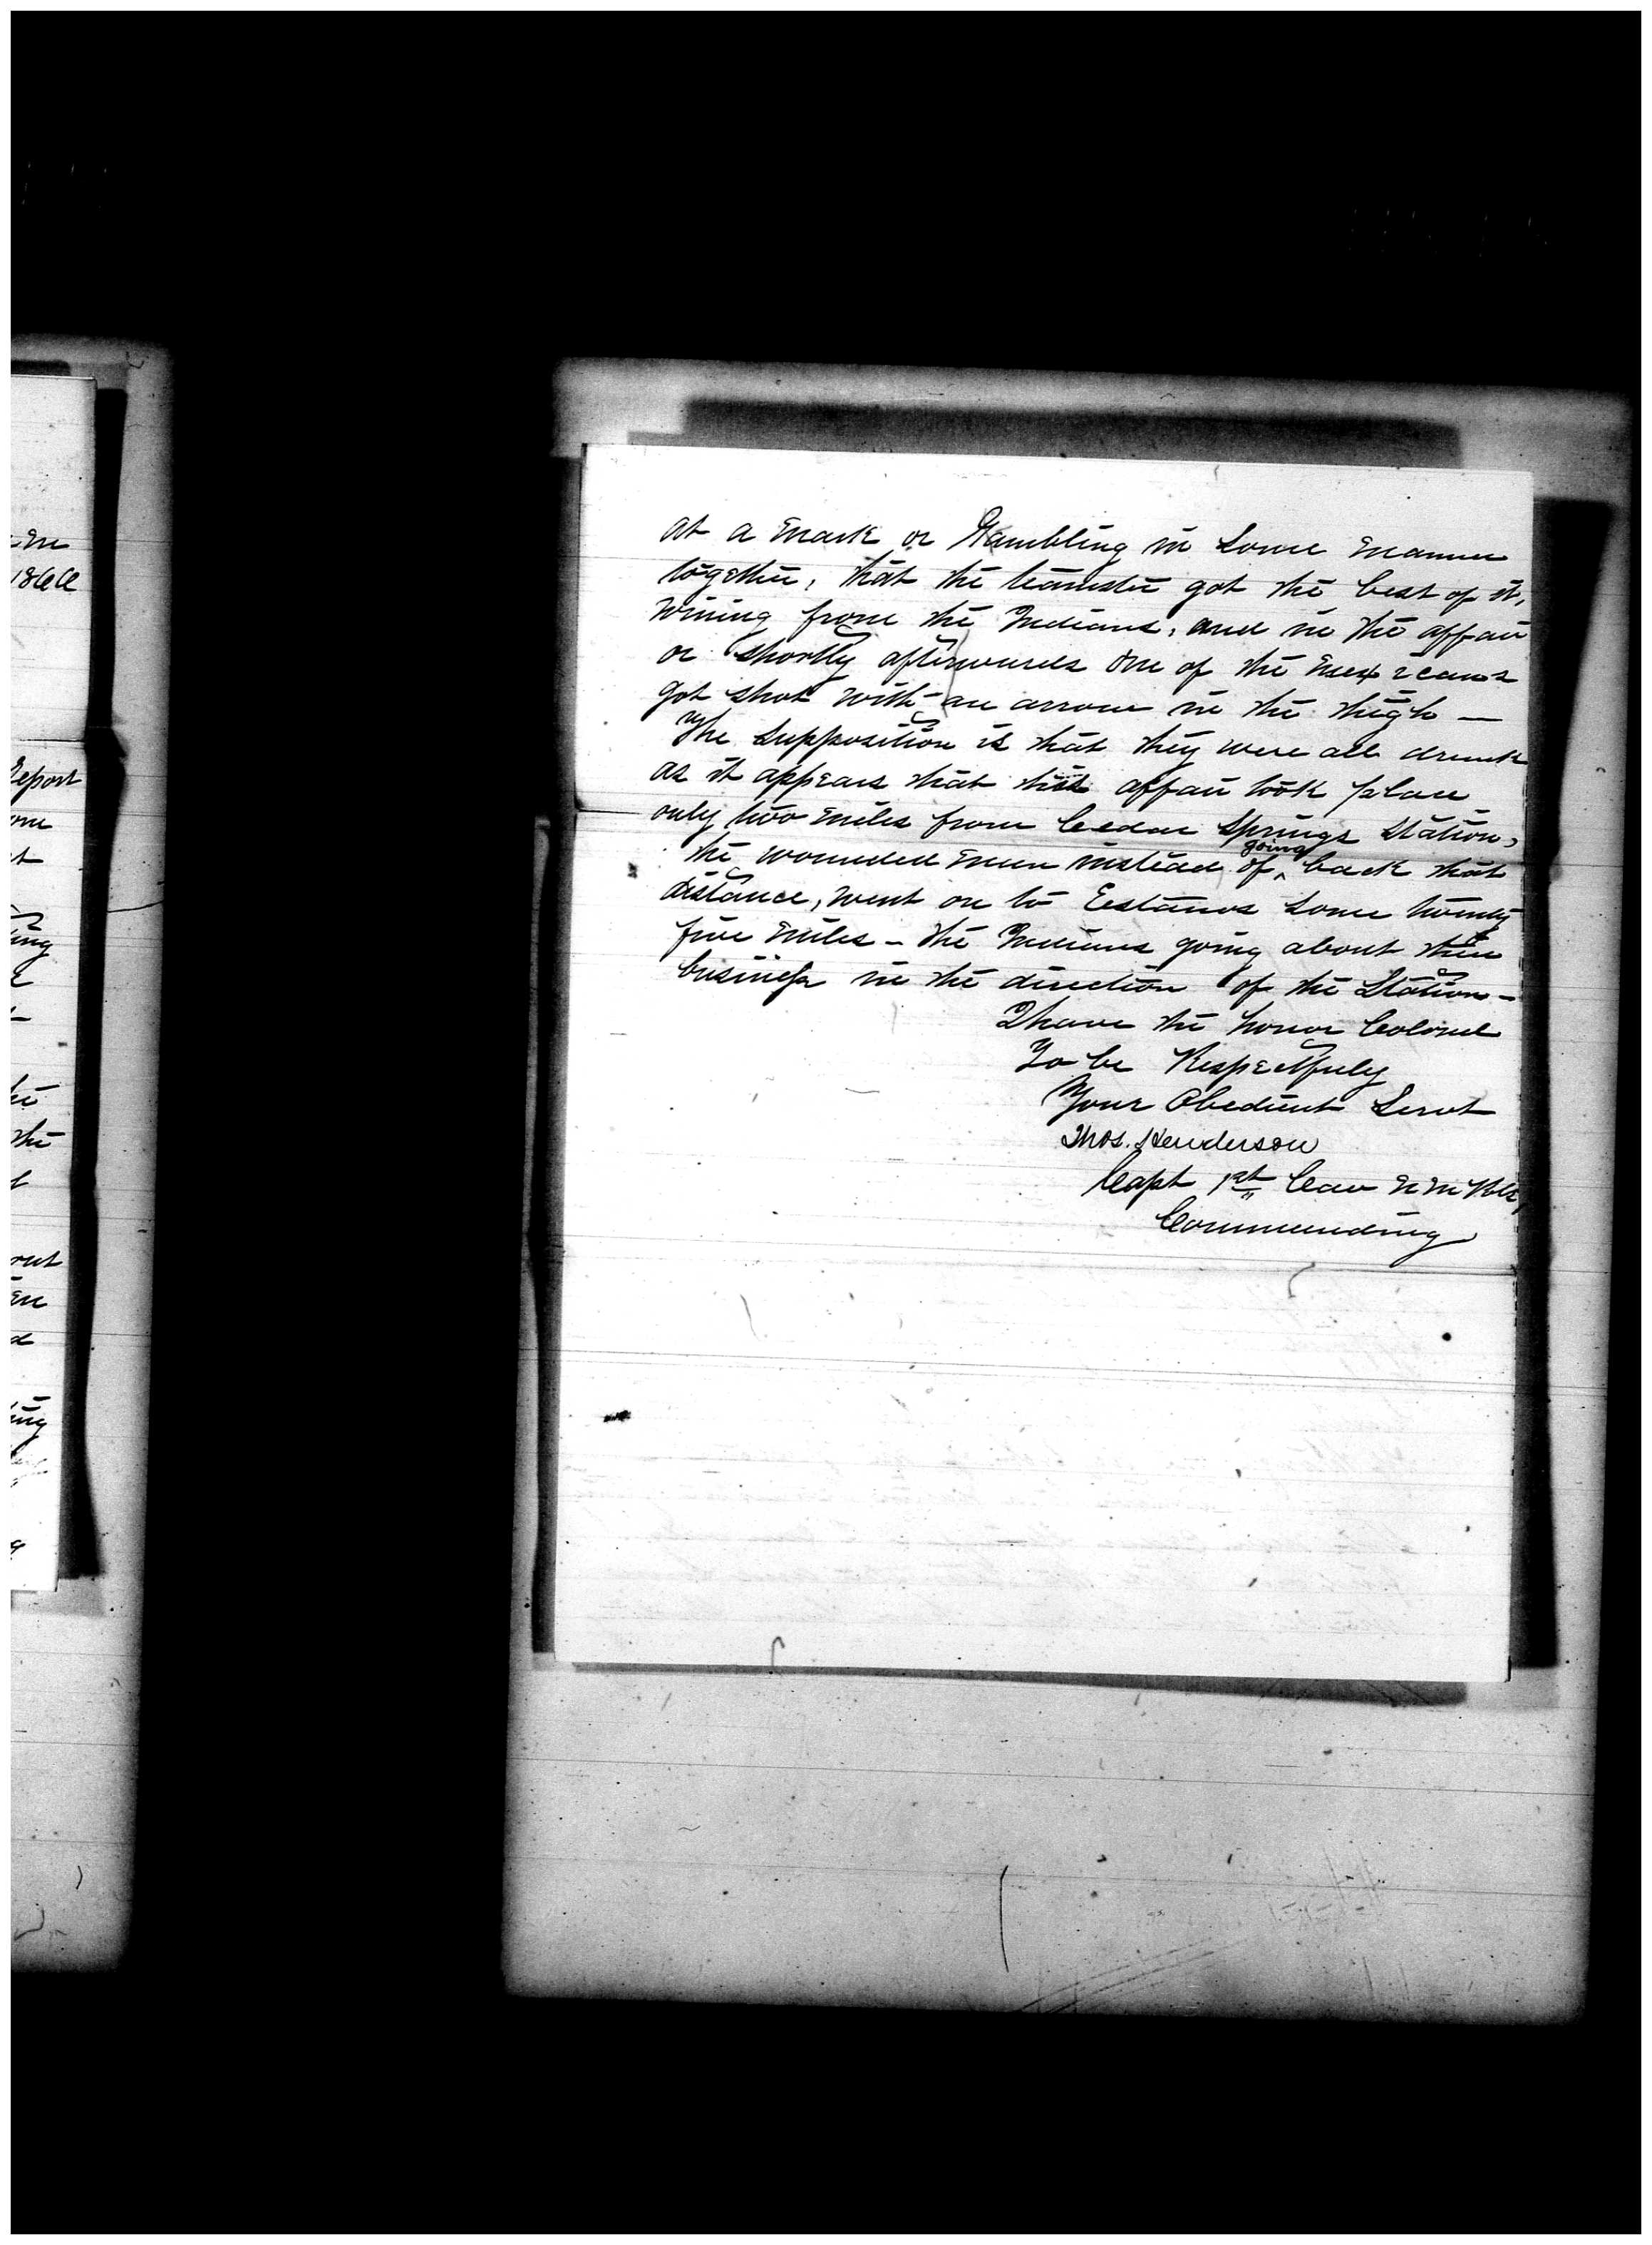 at a mark or Gambling in some manner
together, that the teamster got the best of it,
wining from the Indians, and in the affair
or shortly afterwards one of the Mexicans
got shot with an arrow in the thigh —
The supposition is that they were all drunk
as it appears that this affair took place
only two miles from Cedar Springs Station,
going
the wounded man instead of back that
distance, went on to Estanos some twenty
five miles - the Indians going about their
business in the direction of the Station -
I have the honor Colonel
To be Respectfuly
Your Obedient Servt
Thos. Henderson
Capt 1st Cav N M Vols,
Commanding
1866
Report